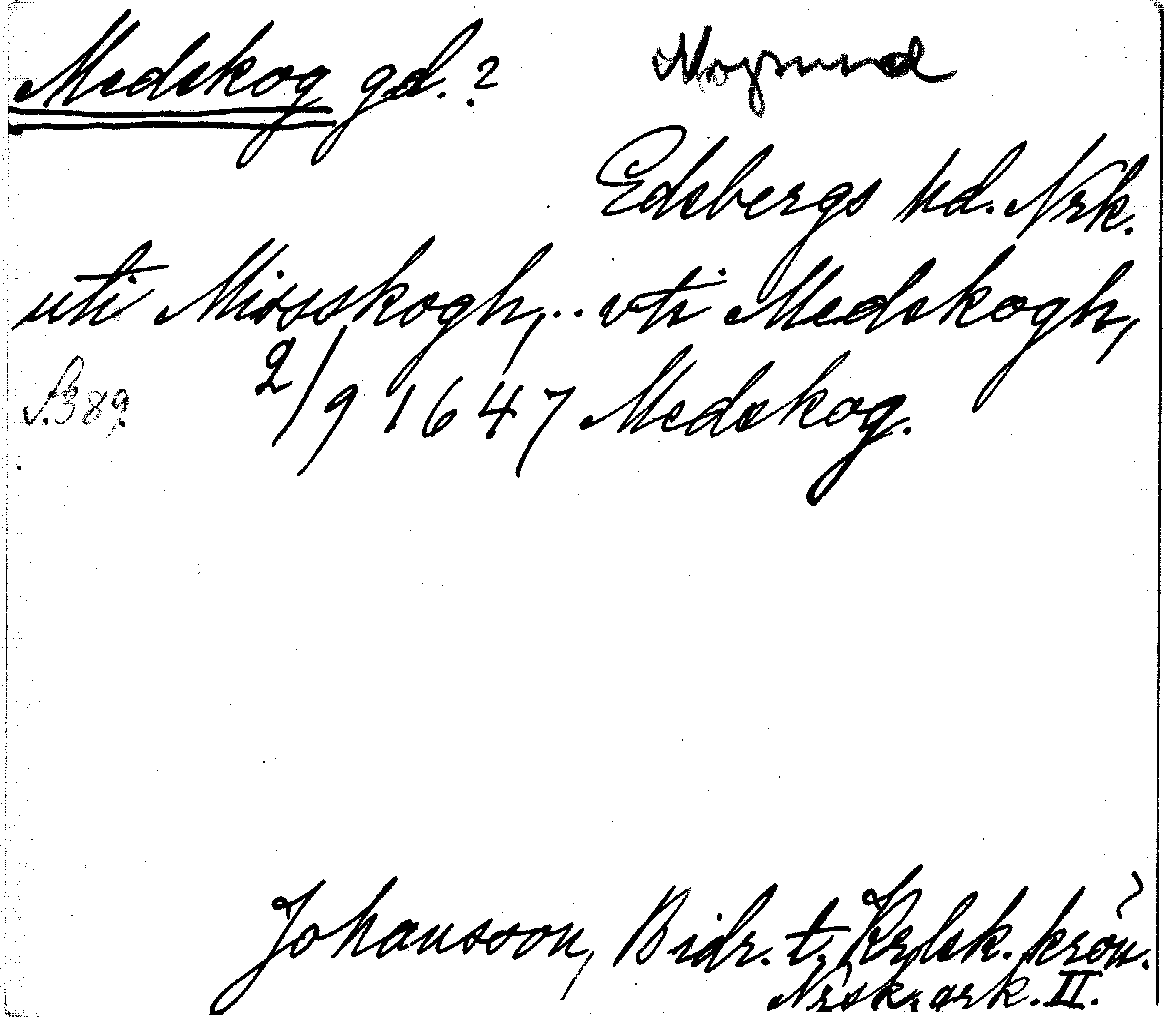 Medskog gd.?
Nysund
Edsbergs hd. Nrk.
uti Missskogh,.. vti Medskogh,
B 89. 2/9 1647 Medskog.
Johansson, Bidr. t. Krlsk. krön.
Nrsk. ark. II.